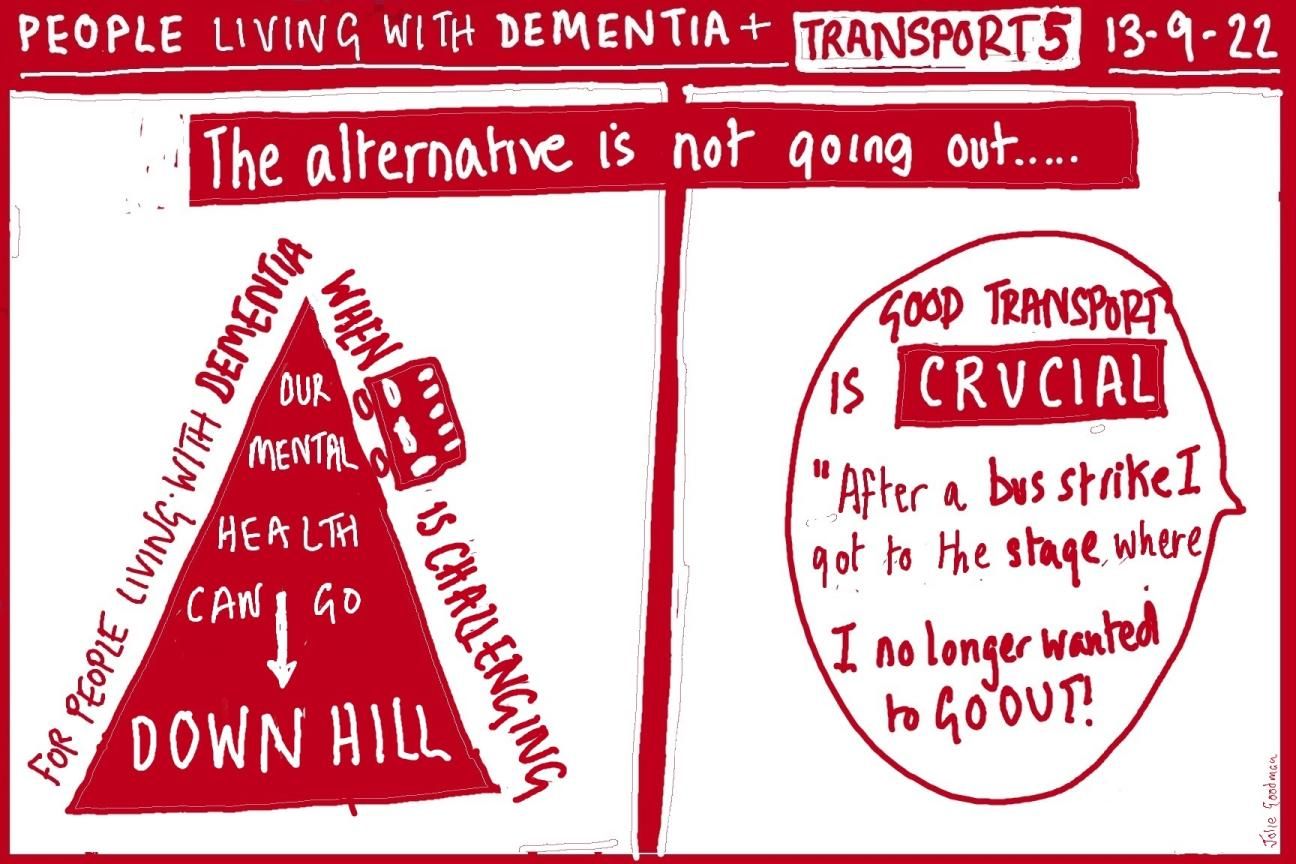 PEOPLE LIVING WITH DEMENTIA + TRANSPORT 5 13-9-22
The alternative is not going out.....
FOR PEOPLE LIVING WITH DEMENTIA
WHEN
IS CHALLENGING
OUR
MENTAL
HEALTH
CAN GO
DOWN HILL
GOOD TRANSPORT
IS CRUCIAL
"After a bus strike I
got to the stage where
I no longer wanted
to GO OUT!
Jolie Goodman